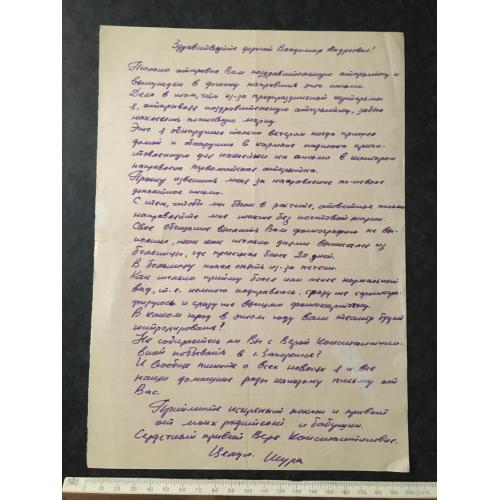 Здравствуйте дорогой Владимир Андреевич!
Только отправил Вам поздравительную открытку и
вынужден в догонку направить это письмо.
Дело в том, что из-за предпраздничной кутерьмы
я, отправляя поздравительную открытку, забыл
наклеить почтовую марку.
Это я обнаружил только вечером когда пришел
домой и обнаружил в кармане пиджака приго-
товленную для наклейки на письмо в котором
направлена первомайская открытка.
Прошу извинить меня за направление по-неволе
доплатное письмо.
С тем, чтобы мы были в расчете, ответное письмо
направляйте мне также без почтовой марки.
Свое обещание выслать Вам фотографию не вы-
полнил, так как только днями выписали из
больницы, где пролежал более 20 дней.
В больницу попал опять из-за печени.
Как только приму более или менее нормальный
вид, т. е. немного поправлюсь, сразу же сфотогра-
фируюсь и сразу же вышлю фотокарточку.
В каком город в этом году Ваш театр будет
гастролировать?
Не собираетесь ли Вы с Верой Константинов-
ной побывать в г. Запорожье?
И вообще пишите о всех новостях я и все
наши домашние рады каждому письму от
Вас.
Примите искренний поклон и привет
от моих родителей и бабушки.
Сердечный привет Вере Константиновне.
Целую. Шура